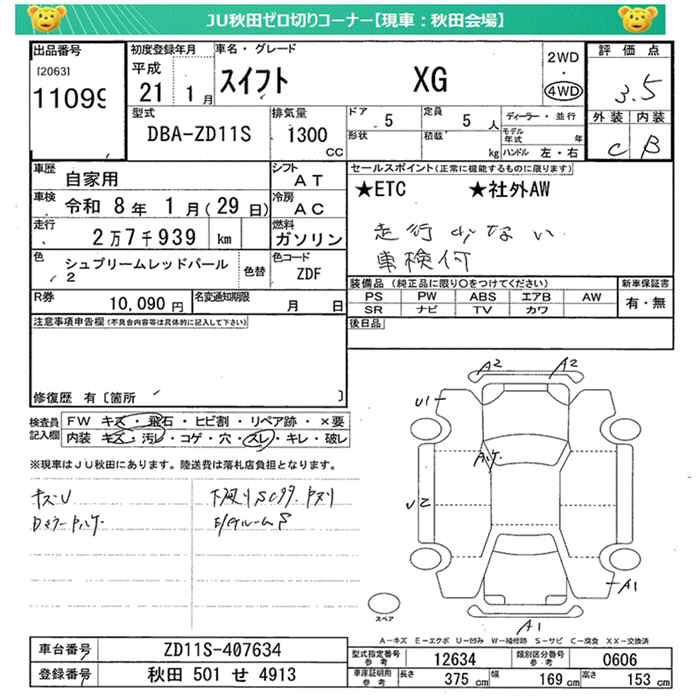 JU秋田ゼロ切りコーナー【現車：秋田会場】
出品番号
[2063]
11099
初度登録年月
平成
21 1月
車名・グレード
スイフト XG
2WD
・
4WD
評価点
3.5
外装 内装
C B
型式
DBA-ZD11S
排気量
1300
CC
ドア 5
形状
定員 5人
積載 kg
ディーラー・並行
モデル年式 年
ハンドル 左・右
車歴
自家用
シフト
AT
車検
令和 8年 1月(29日)
冷房
AC
走行
2万7千939 km
燃料
ガソリン
色
シュプリームレッドパール2
色替
色コード
ZDF
R券
10,090円
名変通知期限
月 日
セールスポイント(正常に機能するものに限ります)
★ETC ★社外AW
走行少ない
車検付
装備品 (純正品に限り○をつけてください)
PS PW ABS エアB AW
SR ナビ TV カワ
新車保証書
有・無
後日品
注意事項申告欄(不具合内容等は具体的に記入して下さい)
修復歴 有 [箇所 ]
検査員記入欄
FW キズ・飛石・ヒビ割・リペア跡・×要
内装 キズ・汚レ・コゲ・穴・スレ・キレ・破レ
※現車はJU秋田にあります。陸送費は落札店負担となります。
キズU
A2 A2
U1
U2
A1
A1
スペア
A－キズ E－エクボ U－凹み W－補修跡 S－サビ C－腐食 XX－交換済
車台番号 ZD11S-407634
登録番号 秋田 501 せ 4913
型式指定番号
参考
12634
類別区分番号
参考
0606
車庫証明用
参考
長さ 375 cm
幅 169 cm
高さ 153 cm